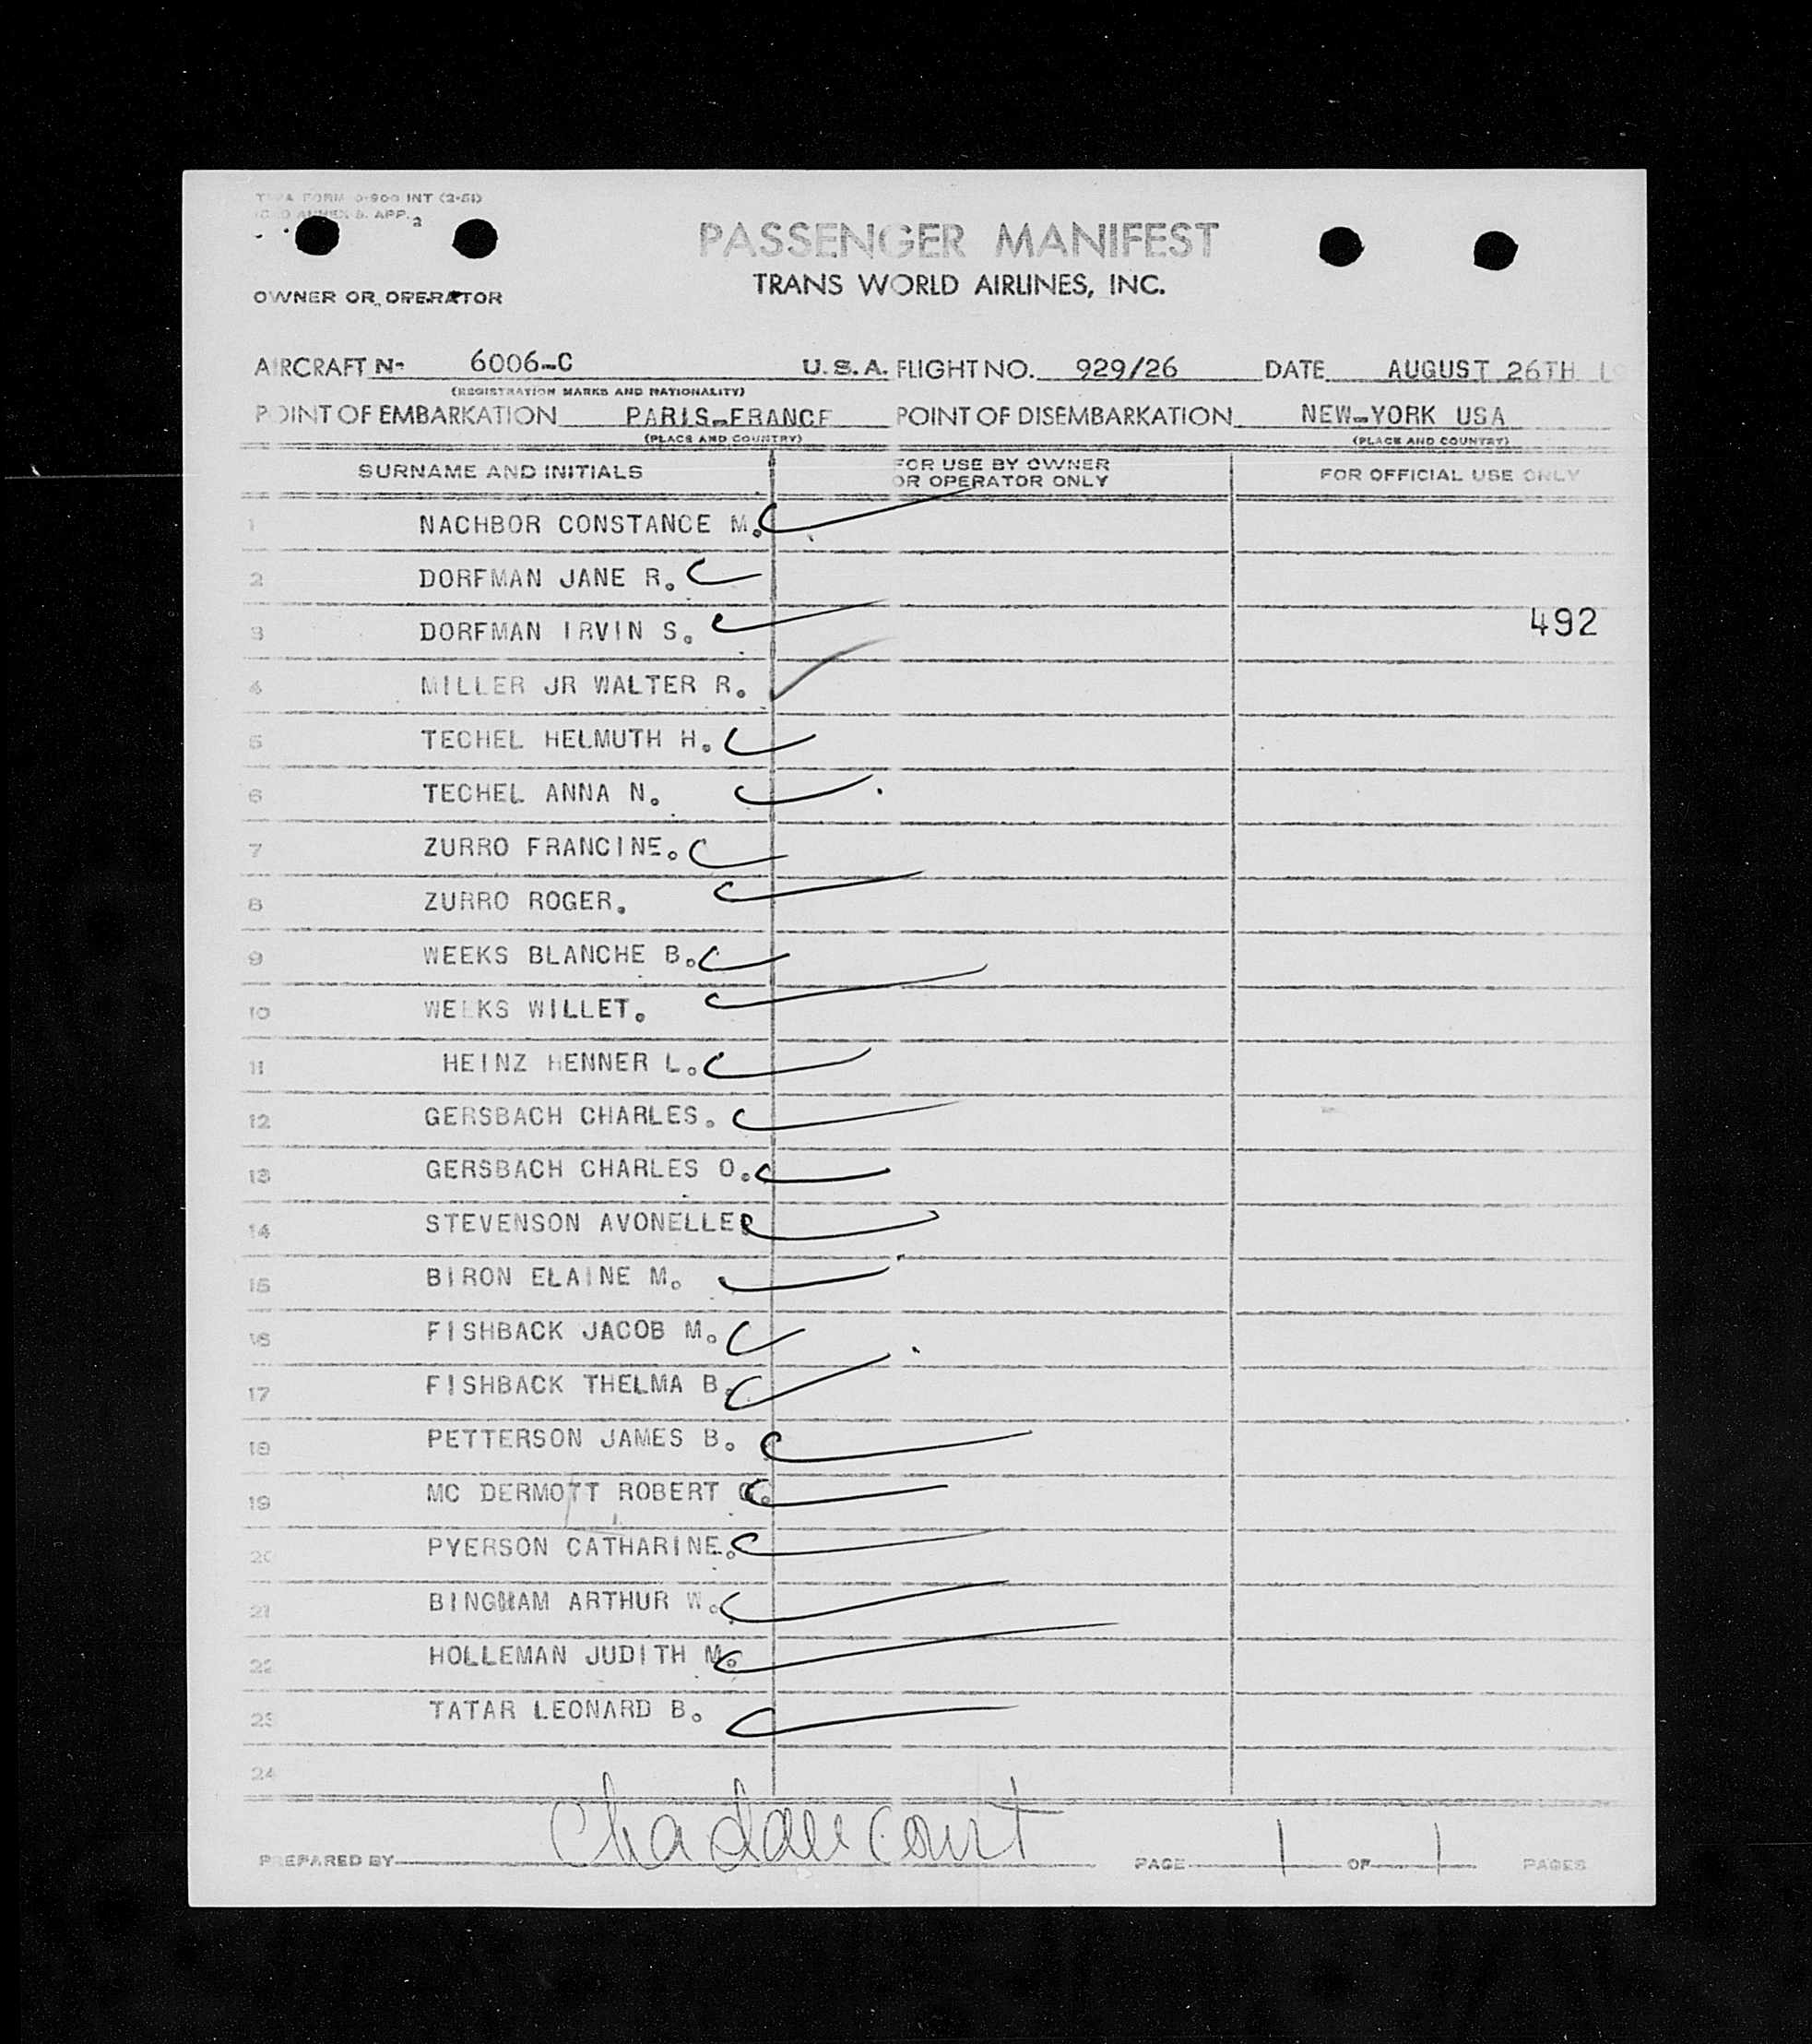 TWA FORM 0-900 INT (2-51)
ICAO ANNEX 9. APP. 2
PASSENGER MANIFEST
TRANS WORLD AIRLINES, INC.
OWNER OR OPERATOR
AIRCRAFT N- 6006-C U.S.A. FLIGHT NO. 929/26 DATE AUGUST 26TH
(REGISTRATION MARKS AND NATIONALITY)
POINT OF EMBARKATION PARIS-FRANCE POINT OF DISEMBARKATION NEW-YORK USA
(PLACE AND COUNTRY) (PLACE AND COUNTRY)
SURNAME AND INITIALS FOR USE BY OWNER OR OPERATOR ONLY FOR OFFICIAL USE ONLY
1 NACHBOR CONSTANCE M.
2 DORFMAN JANE R.
3 DORFMAN IRVIN S. 492
4 MILLER JR WALTER R.
5 TECHEL HELMUTH H.
6 TECHEL ANNA N.
7 ZURRO FRANCINE.
8 ZURRO ROGER.
9 WEEKS BLANCHE B.
10 WEEKS WILLET.
11 HEINZ HENNER L.
12 GERSBACH CHARLES.
13 GERSBACH CHARLES O.
14 STEVENSON AVONELLE
15 BIRON ELAINE M.
16 FISHBACK JACOB M.
17 FISHBACK THELMA B.
18 PETTERSON JAMES B.
19 MC DERMOTT ROBERT
20 PYERSON CATHARINE.
21 BINGHAM ARTHUR W.
22 HOLLEMAN JUDITH M.
23 TATAR LEONARD B.
24
PREPARED BY PAGE 1 OF 1 PAGES